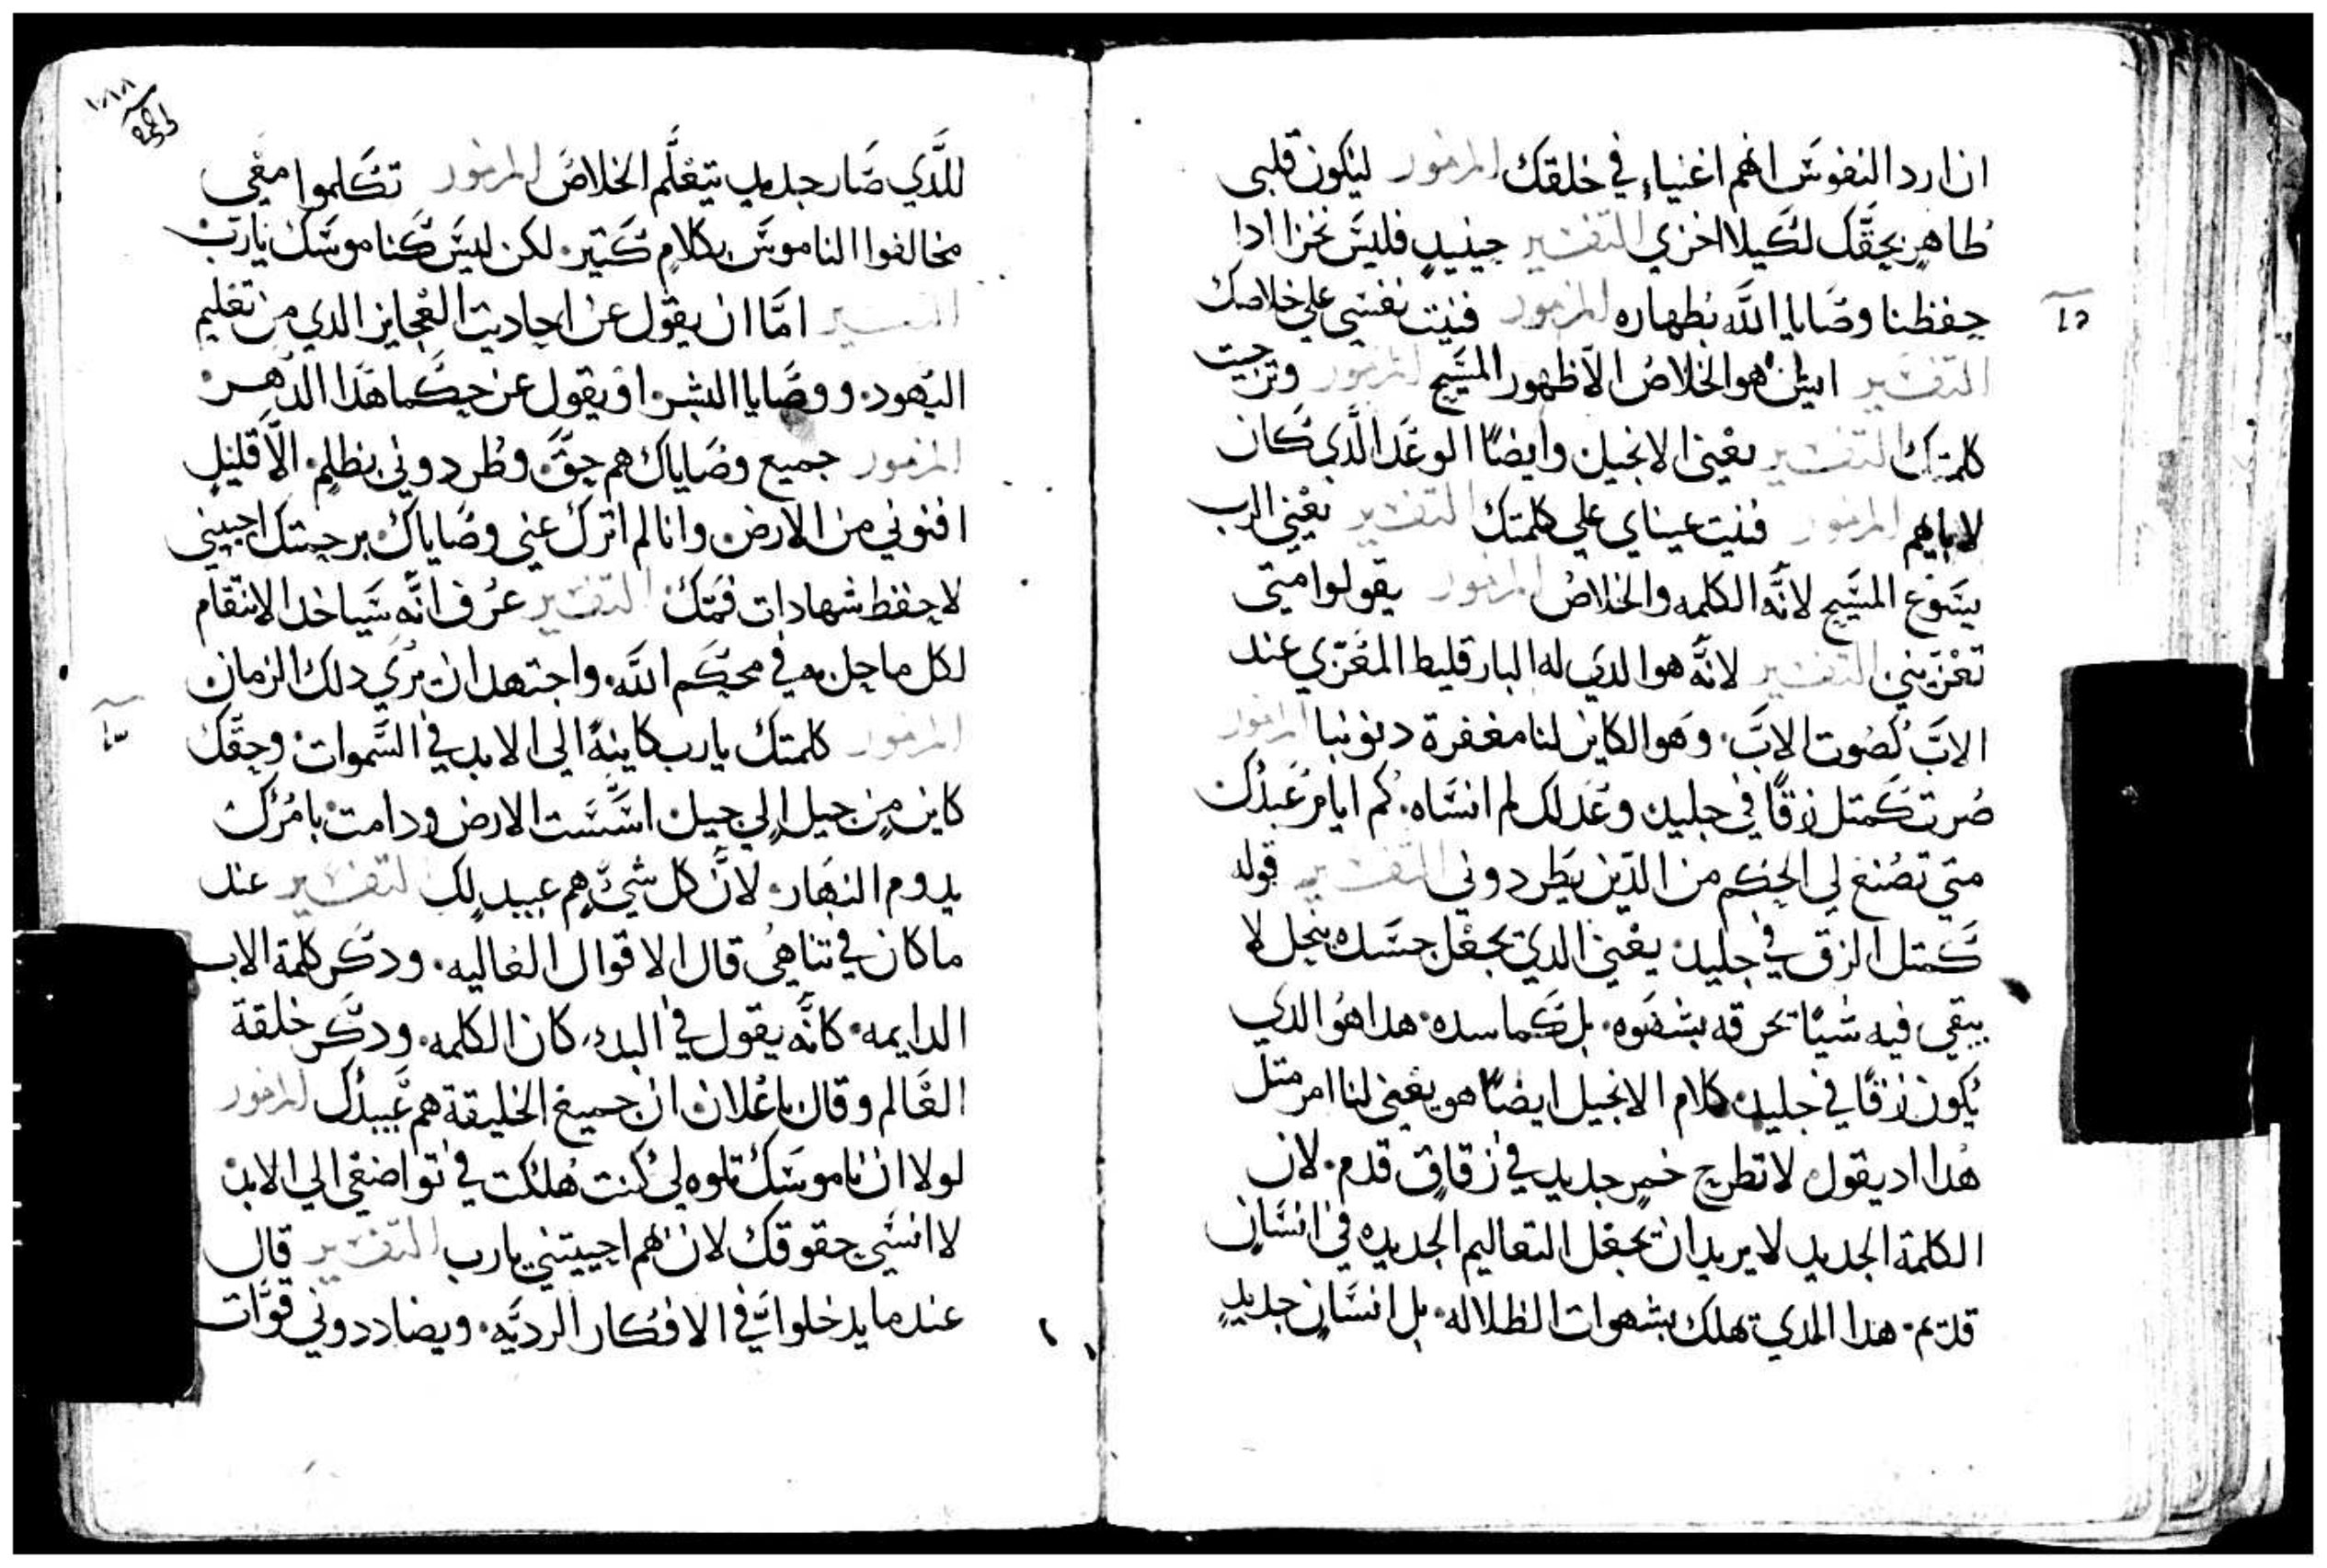 ان ارد النفوس انهم اغنياء في خلقك المزمور ليكون قلبي
طاهر بحقك لكيلا اخزي التفسير حينيد فليس نخزا ادا
حفظنا وصايا الله بطهاره المزمور فنيت نفسي علي خلاصك
التفسير اين هو الخلاص الا ظهور المسيح المزمور وترجيت
كلمتك التفسير يعني الانجيل وايضا الوعد الدي كان
لابايهم المزمور فنيت عيناي علي كلمتك التفسير يعني الرب
يسوع المسيح لانه الكلمه والخلاص المزمور يقولوا متي
تعزيني التفسير لانه هو الدي له البارقليط المعزي عند
الاب كصوت الاب. وهو الكاين لنا مغفرة دنوبنا المزمور
صرت كمتل زقا في جليد وعدلك لم انساه. كم ايام عبدك
متي تصنع لي الحكم من الدين يطردوني التفسير قوله
كمتل الزق في جليد يعني الدي يجعل جسده ينحل لا
يبقي فيه شيا تحرقه بشهوه. بل كما سده. هدا هو الدي
يكون زقا في جليد كلام الانجيل ايضا هو يعني لنا امر متل
هدا اد يقول لا تطرح خمر جديد في زقاق قدم. لان
الكلمة الجديد لا يريد ان يجعل التعاليم الجديده في انسان
قديم. هدا الدي تهلك بشهوات الظلاله. بل انسان جديد
١٥
١٨٨
للدي صار جديد يتعلم الخلاص المزمور تكلموا معي
مخالفوا الناموس بكلام كتير. لكن ليس كناموسك يارب
التفسير اما ان يقول عن احاديت العجايز الدي من تعليم
اليهود. ووصايا البشر. او يقول عن حكما هدا الدهر
المزمور جميع وصاياك هم حق. وطردوني بظلم. الا قليل
افنوني من الارض. وانا لم اترك عني وصاياك. برحمتك احييني
لاحفظ شهادات فمك. التفسير عرف انه سياخد الانتقام
لكل ما حل به في محكم الله. واجتهد ان يري دلك الزمان
المزمور كلمتك يارب كاينة الي الابد في السموات وحقك
كاين من جيل الي جيل. اسست الارض ودامت بامرك
يدوم النهار. لان كل شي هم عبيد لك التفسير عند
ما كان في تناهي قال الاقوال العاليه. ودكر كلمة الاب
الدايمه. كانه يقول في البدء كان الكلمه. ودكر خلقة
العالم وقال باعلان ان جميع الخليقة هم عبيدك المزمور
لولا ان ناموسك تلوه لي كنت هلكت في تواضعي الي الابد
لا انسي حقوقك لان بهم احييتني يارب التفسير قال
عندما يدخلوا في الافكار الرديه. ويضاددوني قوات